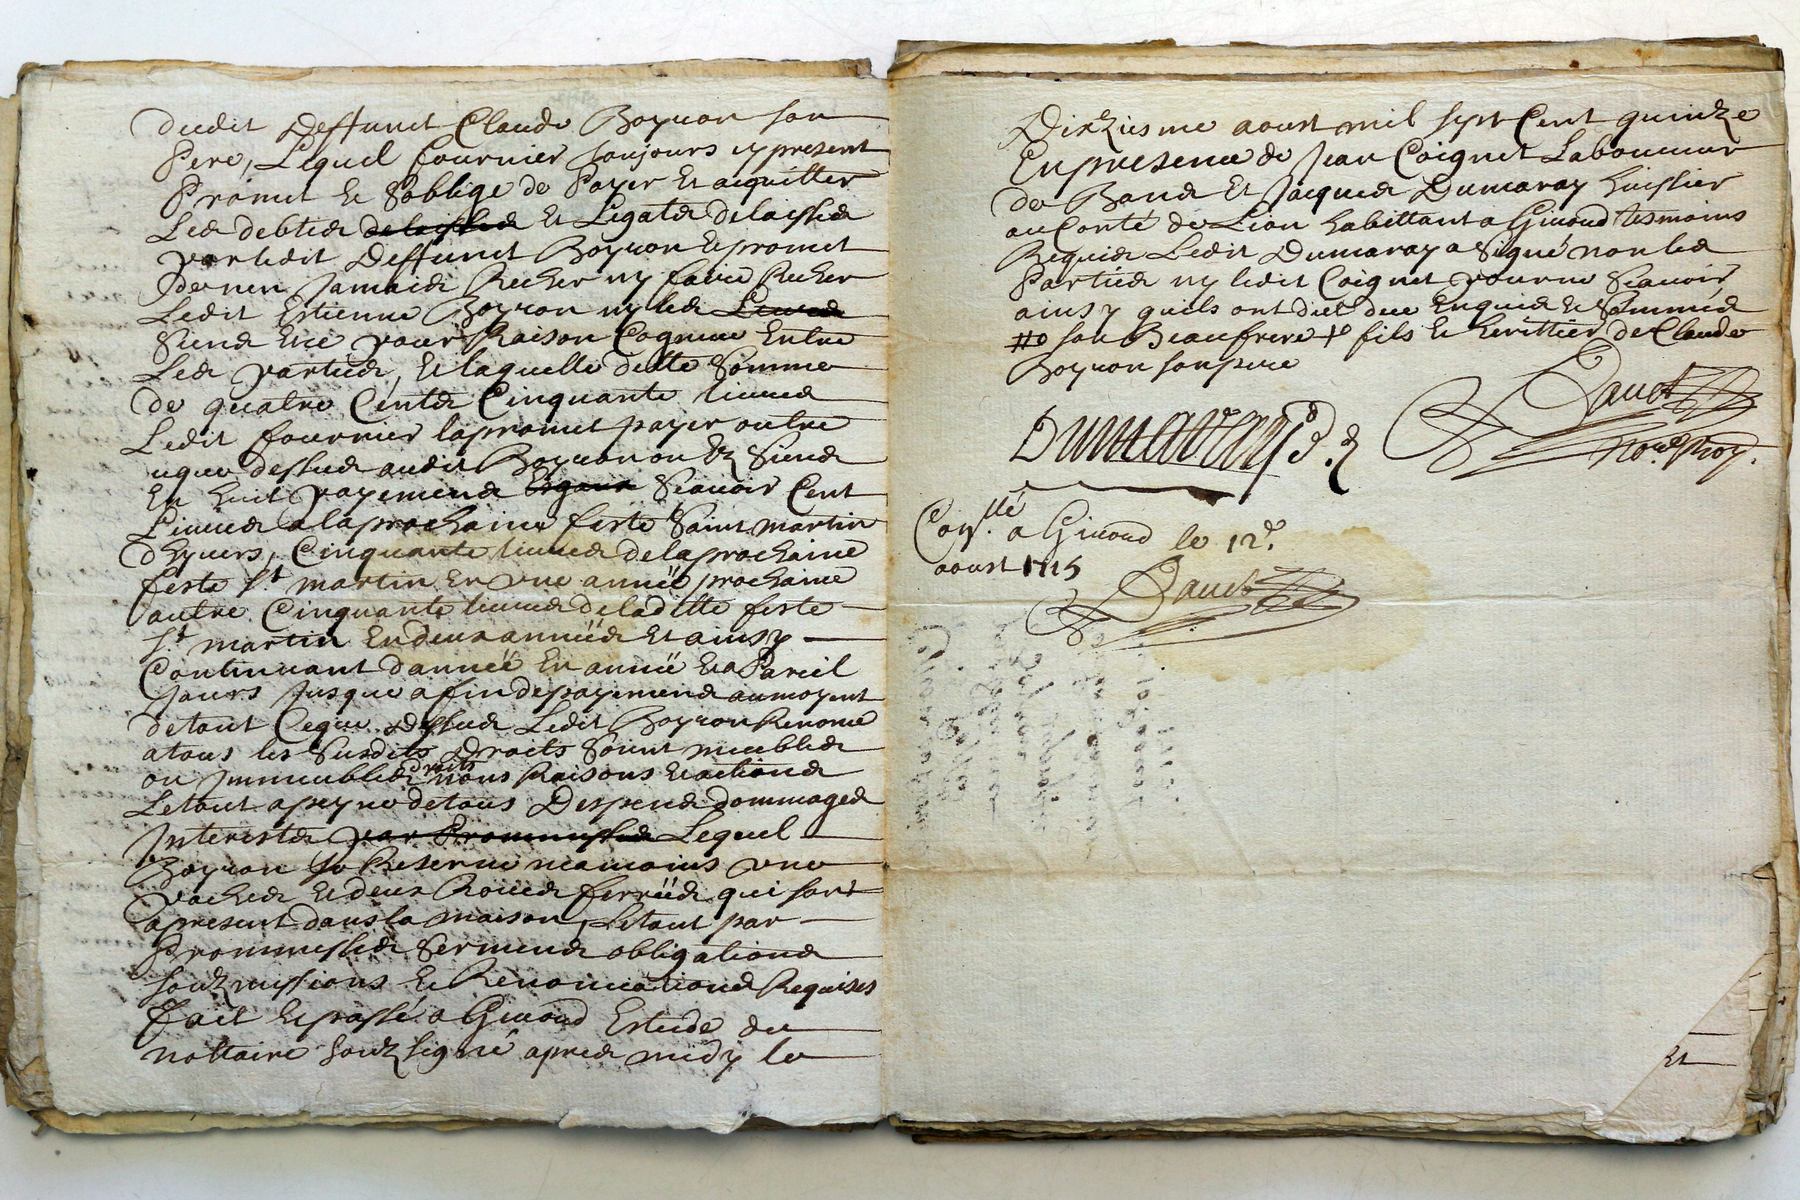 dudit Deffunct Claude Boyron son
Pere, Lequel fournier toujours cy present
Promet et soblige de Payer et acquitter
Les debtes delaissées et Legats delaissés
par ledit Deffunct Boyron et promet
de nen Jamais Recher ny faire Recher
Ledit Estienne Boyron ny les Leurs
Siens et ce pour Raison Cogneue Entre
Les parties, et laquelle ditte Somme
de quatre Cents Cinquante livres
Ledit fournier la promet payer outre
que dessus audit Boyron ou es Siens
En huit payemens Scauoir Cent
Liures a la prochaine feste Saint martin
d'hyuers, Cinquante liures de la prochaine
feste St martin En une année prochaine
autre Cinquante liures de la ditte feste
St martin En deux années Et ainsy
Continuant dannéé En année Et a Pareil
Jours Jusque a fin de payemens au moyent
de tout Ceque Dessus Ledit Boyron Renonce
a tous les Susdits Droits Soint meubles
ou Immeubles droits noms Raisons et actions
Le tout a peyne de tous Despens dommages
Interests par Prommesses Lequel
Boyron se Reserue neamoins une
vaches et deux Roües ferréés qui sont
apresent dans la maison, Le tout par
Prommesses Sermens obligations
soubzmissions et Renonciations Requises
Fait et passé a Giuord Estude du
nottaire soubz signé apres midy le
Dixziesme aoust mil sept Cent quinze
En presence de Jean Coignet Laboureur
de Bans Et Jacques Dumaray huissier
au Conté de Lion habittant a Giuord tesmoins
Requis Ledit Dumaray a Signé non les
Parties ny ledit Coignet pour ne Scauoir
ainsy quils ont dict de ce Enquis et Sommés
# o son Beaufrere + fils et herittier de Claude
Boyron son pere
Dumaray
no.re Roy.
Con.llé a Giuord le 12.e
aoust 1715
Et